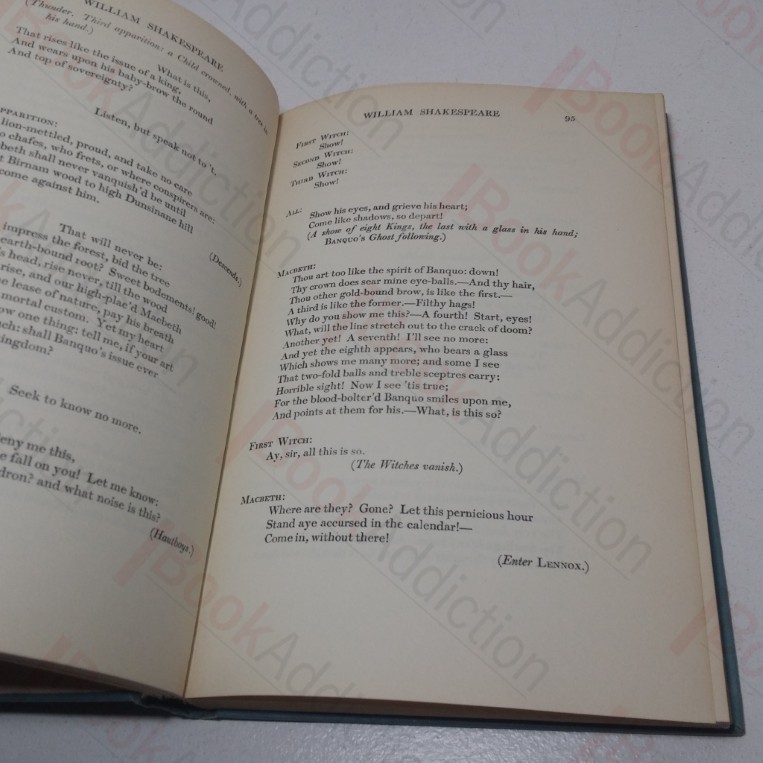 WILLIAM SHAKESPEARE
(Thunder. Third apparition: a Child crowned, with a tree in
his hand.)
What is this,
That rises like the issue of a king,
And wears upon his baby-brow the round
And top of sovereignty?
Listen, but speak not to 't.
PPARITION:
lion-mettled, proud, and take no care
o chafes, who frets, or where conspirers are:
beth shall never vanquish'd be until
t Birnam wood to high Dunsinane hill
come against him.
(Descends.)
That will never be:
impress the forest, bid the tree
earth-bound root? Sweet bodements! good!
s head, rise never, till the wood
rise, and our high-plac'd Macbeth
e lease of nature, pay his breath
mortal custom. Yet my heart
ow one thing: tell me, if your art
ch: shall Banquo's issue ever
ingdom?
Seek to know no more.
eny me this,
e fall on you! Let me know:
dron? and what noise is this?
(Hautboys.)
WILLIAM SHAKESPEARE 95
FIRST WITCH:
Show!
SECOND WITCH:
Show!
THIRD WITCH:
Show!
ALL:
Show his eyes, and grieve his heart;
Come like shadows, so depart!
(A show of eight Kings, the last with a glass in his hand;
BANQUO'S Ghost following.)
MACBETH:
Thou art too like the spirit of Banquo: down!
Thy crown does sear mine eye-balls.—And thy hair,
Thou other gold-bound brow, is like the first.—
A third is like the former.—Filthy hags!
Why do you show me this?—A fourth! Start, eyes!
What, will the line stretch out to the crack of doom?
Another yet! A seventh! I'll see no more:
And yet the eighth appears, who bears a glass
Which shows me many more; and some I see
That two-fold balls and treble sceptres carry:
Horrible sight! Now I see 'tis true;
For the blood-bolter'd Banquo smiles upon me,
And points at them for his.—What, is this so?
FIRST WITCH:
Ay, sir, all this is so.
(The Witches vanish.)
MACBETH:
Where are they? Gone? Let this pernicious hour
Stand aye accursed in the calendar!—
Come in, without there!
(Enter LENNOX.)
BookAddiction